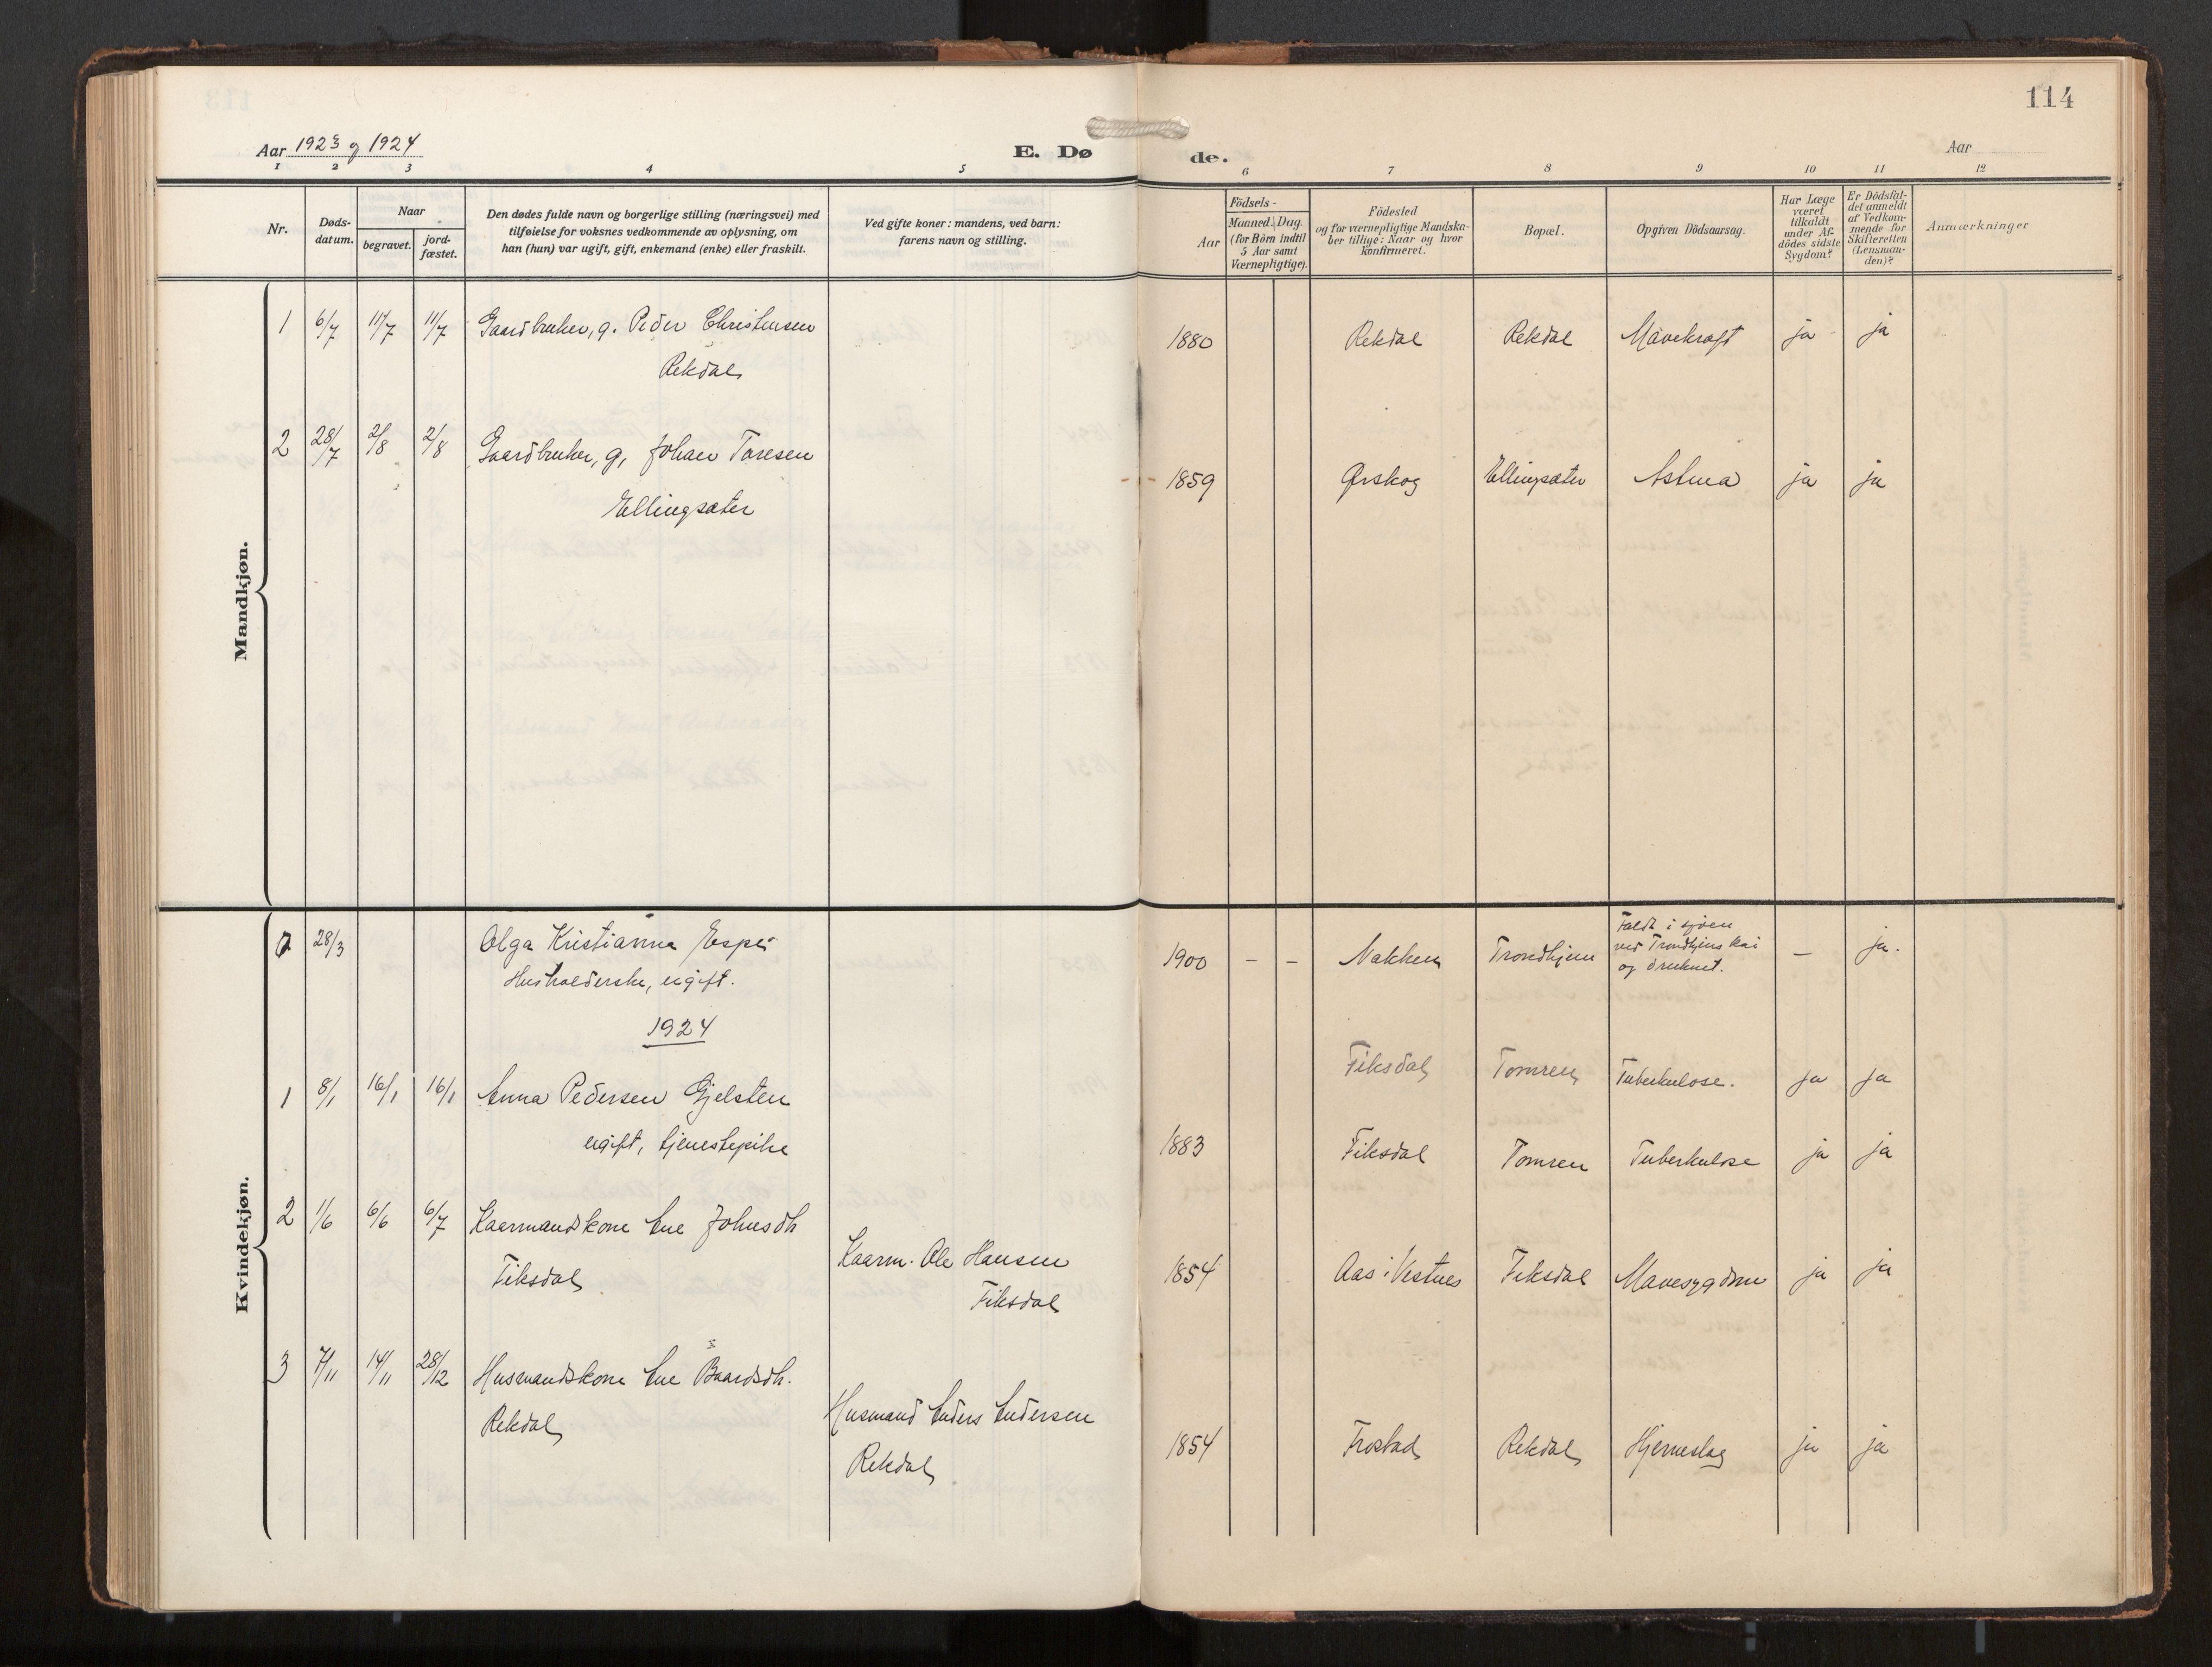 114
Aar 1923 og 1924
E. Døde.
Aar
1 2 3 4 5 6 7 8 9 10 11 12
Nr.
Døds-
datum.
Naar
begravet.
jord-
fæstet.
Den dødes fulde navn og borgerlige stilling (næringsvei) med
tilføielse for voksnes vedkommende av oplysning, om
han (hun) var ugift, gift, enkemand (enke) eller fraskilt.
Ved gifte koner: mandens, ved barn:
farens navn og stilling.
Födsels-
Aar
Maaned Dag.
(for Börn indtil
5 Aar samt
Værnepligtige).
Födested
og for værnepligtige Mandska-
ber tillige: Naar og hvor
konfirmeret.
Bopæl.
Opgiven Dödsaarsag.
Har Læge
været
tilkaldt
under Af-
dödes sidste
Sygdom?
Er Dödsfal-
det anmeldt
af Vedkom-
mende for
Skifteretten
(Lensman-
den)?
Anmærkninger
Mandkjøn.
1 6/7 11/7 11/7 Gaardbruker, g. Peder Christensen
Rekdal
1880 Rekdal Rekdal Mavekræft ja ja
2 28/7 2/8 2/8 Gaardbruker, g, Johan Taresen
Ellingsæter
1859 Ørskog Ellingsæter Astma ja ja
Kvindekjøn.
28/3 Olga Kristianna Espe
Husholderske, ugift.
1900 - - Nakken Trondhjem
Faldt i sjøen
ved Trondhjems kai
og druknet.
— ja.
1924
1 8/1 16/1 16/1 Anna Pedersen Gjelsten
ugift, tjenestepike
Fiksdal Tomren Tuberkulose. ja ja
1883 Fiksdal Tomren Tuberkulose ja ja
2 1/6 6/6 6/7 Kaarmandskone Ane Johnsdh
Fiksdal
Kaarm. Ole Hansen
Fiksdal
1854 Aas i Vestnes Fiksdal Mavesygdom ja ja
3 7/11 14/11 28/12 Husmandskone Ane Baardsdh.
Rekdal
Husmand Anders Andersen
Rekdal
1854 Frostad Rekdal Hjerneslag ja ja